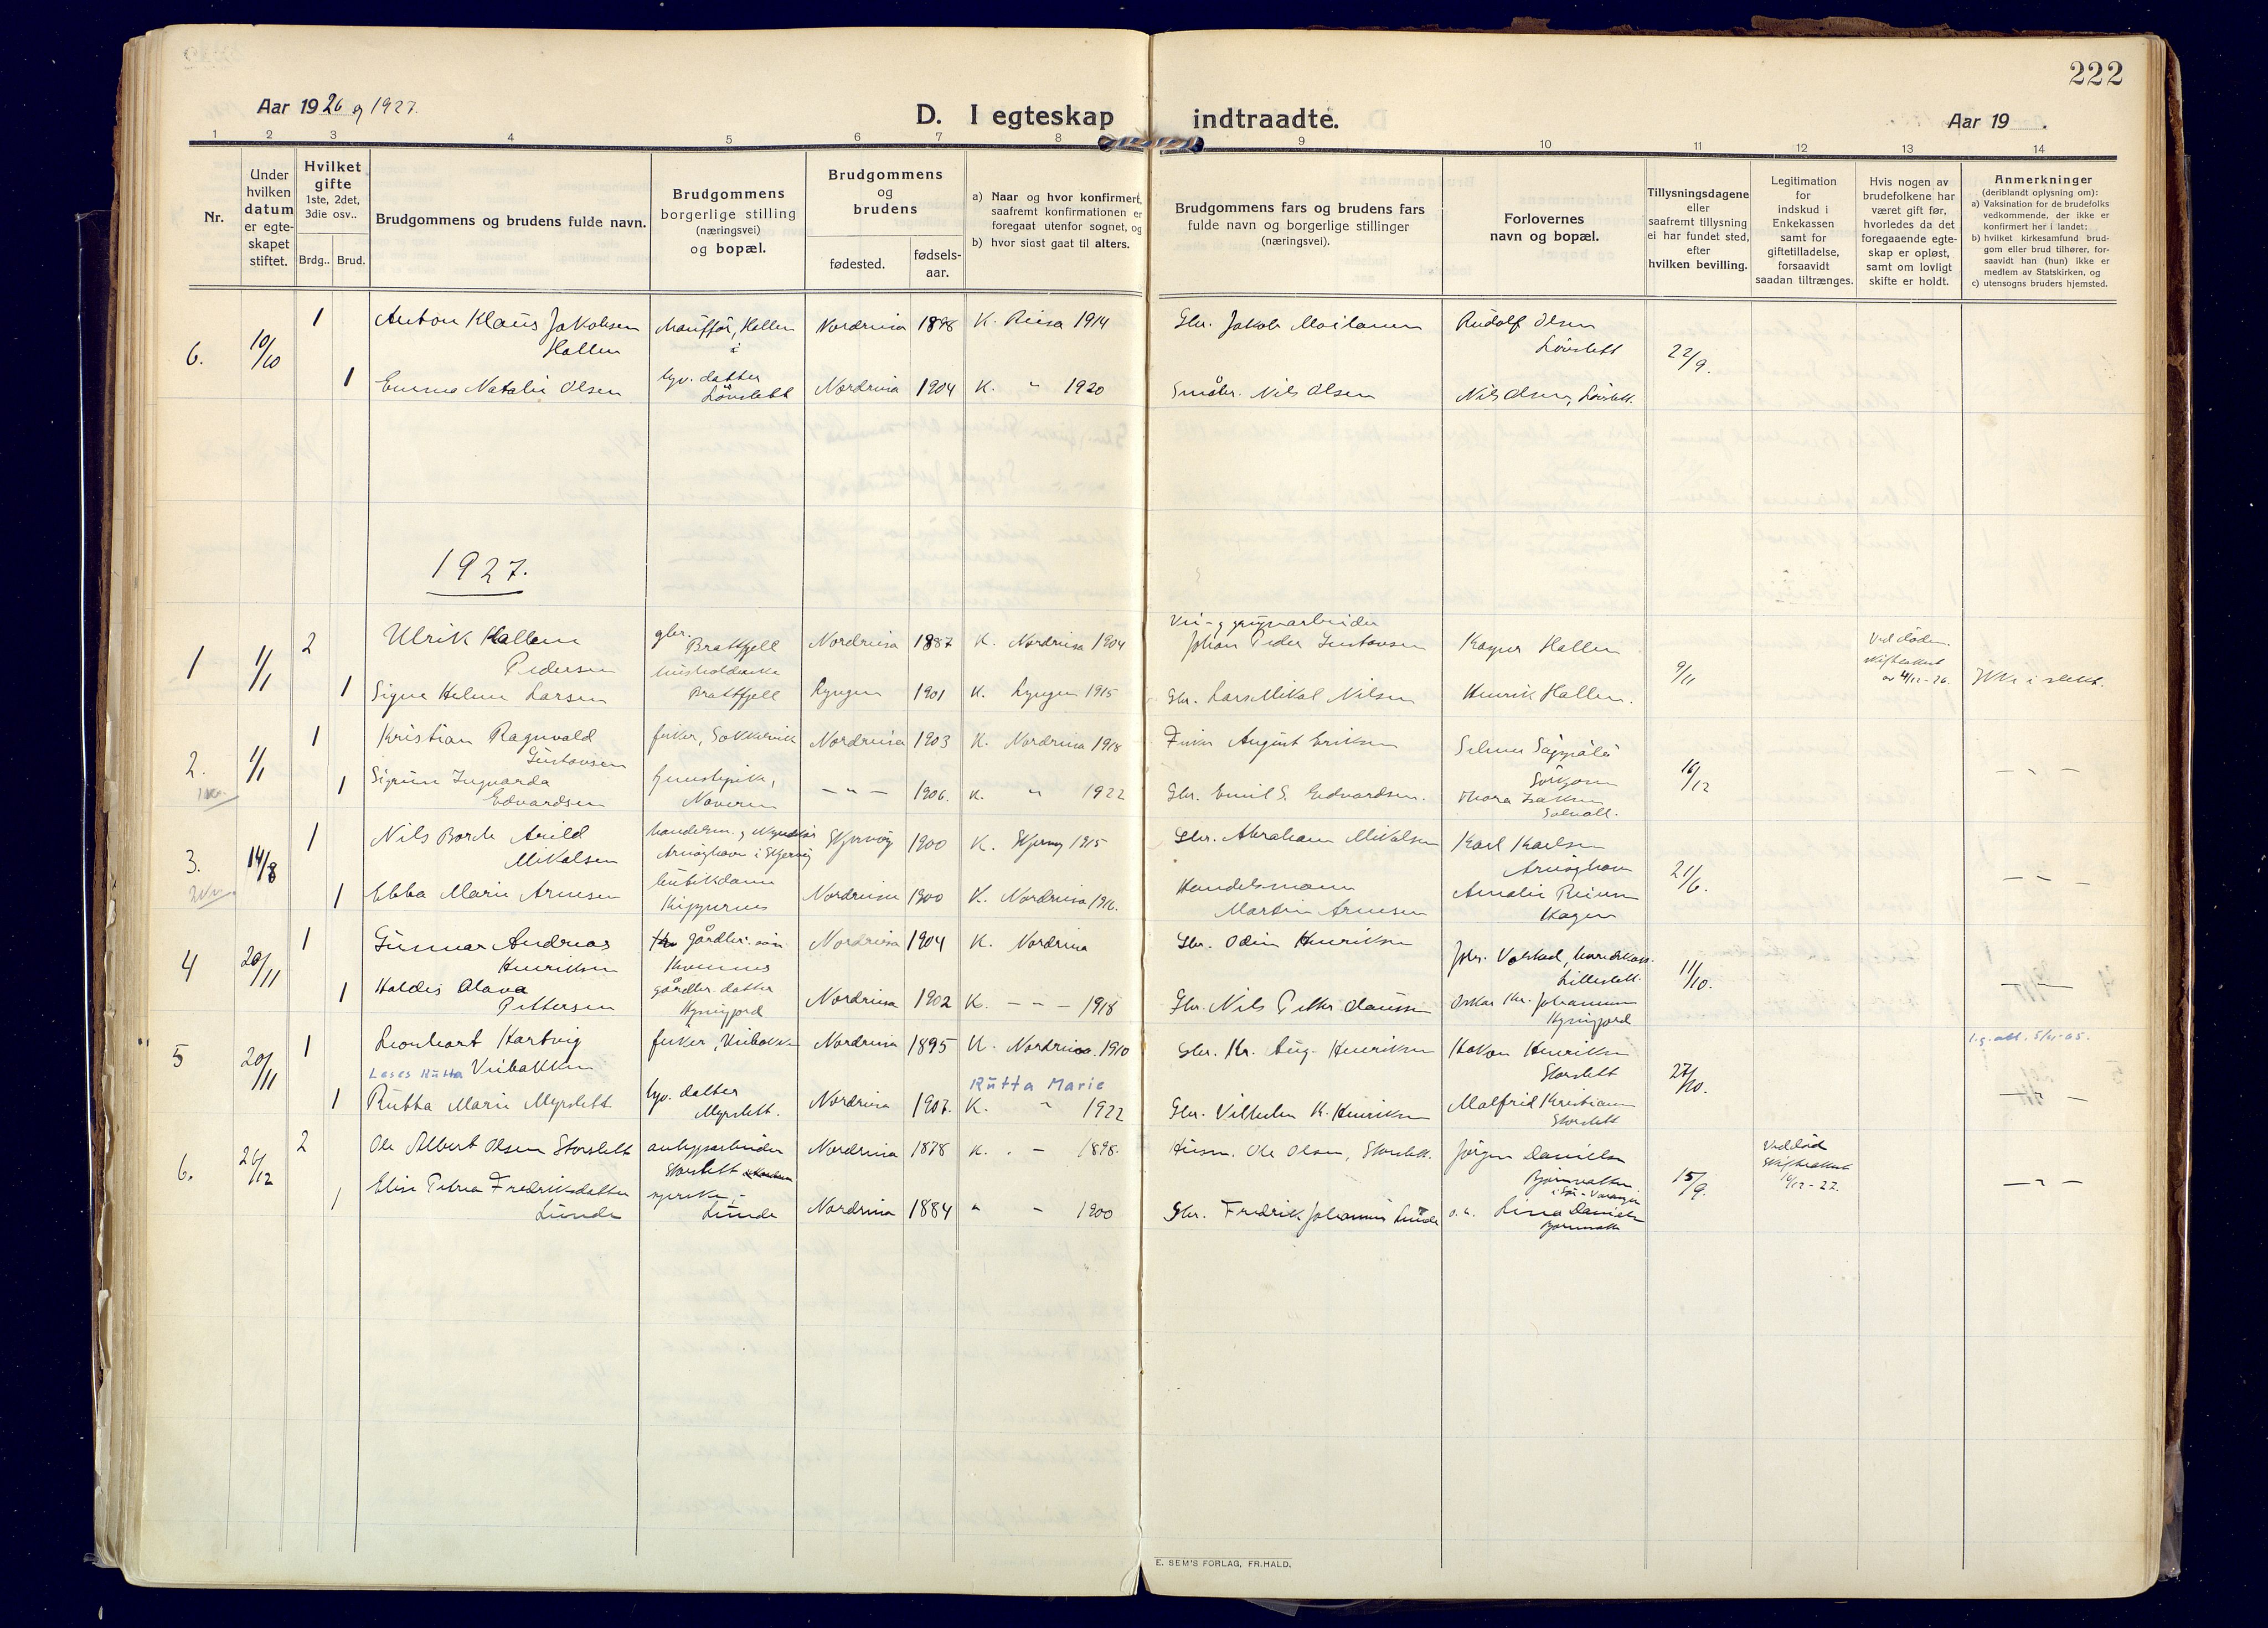 222
Aar 1926 og 1927.
D. I egteskap indtraadte.
Aar 19 .
1 2 3 4 5 6 7 8 9 10 11 12 13 14
Nr.
Under
hvilken
datum
er egte-
skapet
stiftet.
Hvilket
gifte
1ste, 2det,
3die osv..
Brdg.. Brud.
Brudgommens og brudens fulde navn.
Brudgommens
borgerlige stilling
(næringsvei)
og bopæl.
Brudgommens
og
brudens
fødested.
fødsels-
aar.
a) Naar og hvor konfirmert,
saafremt konfirmationen er
foregaat utenfor sognet, og
b) hvor sisst gaat til alters.
Brudgommens fars og brudens fars
fulde navn og borgerlige stillinger
(næringsvei).
Forlovernes
navn og bopæl.
Tillysningsdagene
eller
saafremt tillysning
ei har fundet sted,
efter
hvilken bevilling.
Legitimation
for
indskud i
Enkekassen
samt for
giftetilladelse,
forsaavidt
saadan tiltrænges.
Hvis nogen av
brudefolkene har
været gift før,
hvorledes da det
foregaaende egte-
skap er opløst,
samt om lovligt
skifte er holdt.
Anmerkninger
(deriblandt oplysning om):
a) Vaksination for de brudefolks
vedkommende, der ikke er
konfirmert her i landet;
b) hvilket kirkesamfund brud-
gom eller brud tilhører, for-
saavidt han (hun) ikke er
medlem av Statskirken, og
c) utensogns bruders hjemsted.
6. 10/10 1 Anton Klaus Jakobsen
Hallen
Nordreisa 1898 K. Reisa 1914
Gbr. Jakob Moilanen
Rudolf Olsen
Lövslett
22/9.
1 Emma Natalie Olsen
datter
Lövslett
Nordreisa 1904 K. " 1920
Småbr. Nils Olsen
Nils Olsen, Lövslett.
1927.
1 1/1 2 Ulrik Hallen
Pedersen
gbr.
Bratfjell
Nordreisa 1887 K. Nordreisa 1904
Johan Peder Gustavsen
Kasper Hallen
9/11
Ved döden.
Skifteattest
av 4/12-26.
Ikke i slekt.
1 Signe Helene Larsen
Bratfjell
Lyngen 1901 K. Lyngen 1915
Gbr. Lars Mikal Nilsen
Henrik Hallen.
2. 1/1 1 Kristian Ragnvald
Gustavsen
fisker, Sokkelvik
Nordreisa 1903 K. Nordreisa 1918
Fisker August Eriksen
16/12
— " —
1 Sigrun Ingvarda
Edvardsen
— " — 1906. K. " 1922
Gbr. Emil S. Edvardsen.
3. 14/8 1 Nils Borch Arild
Mikalsen
Arnöyhavn i Skjervöy
Skjervöy 1900 K. Skjervöy 1915
Gbr. Abraham Mikalsen
Karl Karlsen
Arnöyhavn
21/6.
— " —
1 Ebba Marie Arnesen
Nordreisa 1900 K. Nordreisa 1916.
Handelsmann
Martin Arnesen
Hagen
4 20/11 1 Gunnar Andreas
Henriksen
gårdbr. sön
Nordreisa 1904 K. Nordreisa
Gbr. Odin Henriksen
11/10.
— " —
1 Haldis Olava
Pettersen
gårdbr. datter
Nordreisa 1902 K. — " — 1918
Gbr. Nils Petter Claussen
5 20/11 1 Leonhart Hartvig
Leses Rutta Viibakken
fisker, Viibakken Nordreisa 1895 K. Nordreisa. 1910
Gbr. Kr. Aug. Henriksen
Håkon Henriksen
Storslett
27/10.
— " —
Rutta Marie
1 Rutta Marie Myrslett
datter
Myrslett.
Nordreisa 1907. K. " 1922
Gbr. Vilhelm K. Henriksen
Malfrid Kristiansen
Storslett
6. 26/12 2 Ole Albert Olsen Storslett
anleggsarbeider
Storslett
Nordreisa 1878 K. . — 1898.
Husm. Ole Olsen, Storslett.
Jörgen Danielsen
Bjørnvatn
i Sör-Varanger
15/9.
Ved död
Skifteattest
— " —
1 Elise Petrea Fredriksdatter
Lunde
Lunde
Nordreisa 1884 " — 1900
Gbr. Fredrik Johannes Lunde
Lina Danielsen
Bjørnvatn
E. SEM'S FORLAG, FR.HALD.